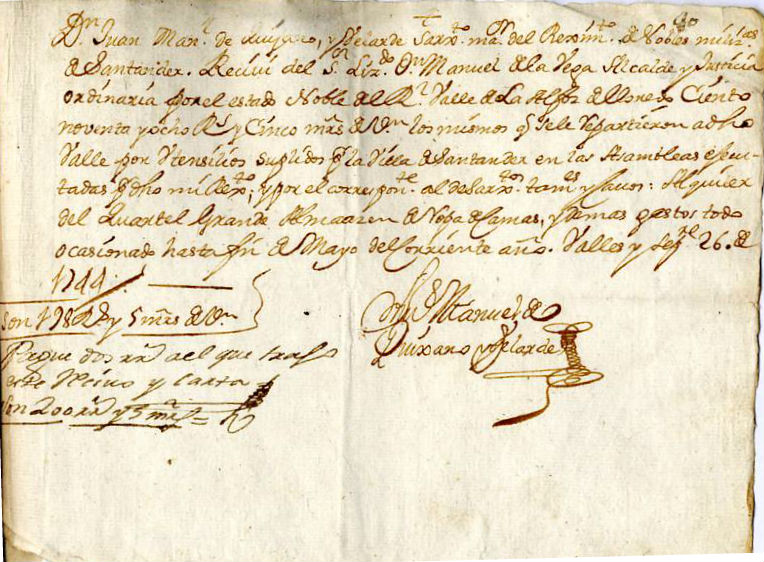 Dn Juan Manl de Quijano, y Velarde Sarxto maor del Reximto de Nobles miliz.as
de Santander. Reciuí del Sr Lizdo Dn Manuel de la Vega Alcalde y Justicia
ordinaria por el estado Noble del Rl Valle de La Alfoz de lloredo Ciento
noventa y ocho Rs y Cinco mrs de Vn los mismos q se le repartieron a dho
Valle por Vtensilios suplidos pr la Villa de Santander en las Asambleas efecu-
tadas pr dho mi Rexto, y por el correspondte al de Sarxtos tamres y : Alquiler
del Quartel Grande Almaazen de Ropa de Camas, y demas gastos todo
ocasionado hasta fin de Mayo del Corriente año. Valles y Sepre 26. de
1744.
Son 198 Rs y 5 mrs de Vn
Dn Jn Manuel de
Quixano y Velarde
Pague dos rrs a el que trajo
este Reciuo y Carta
son 200 rrs y 5 mrs =